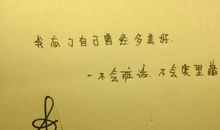 我忘了自己曾经多美好.
一不会脏话.不会笑里藏